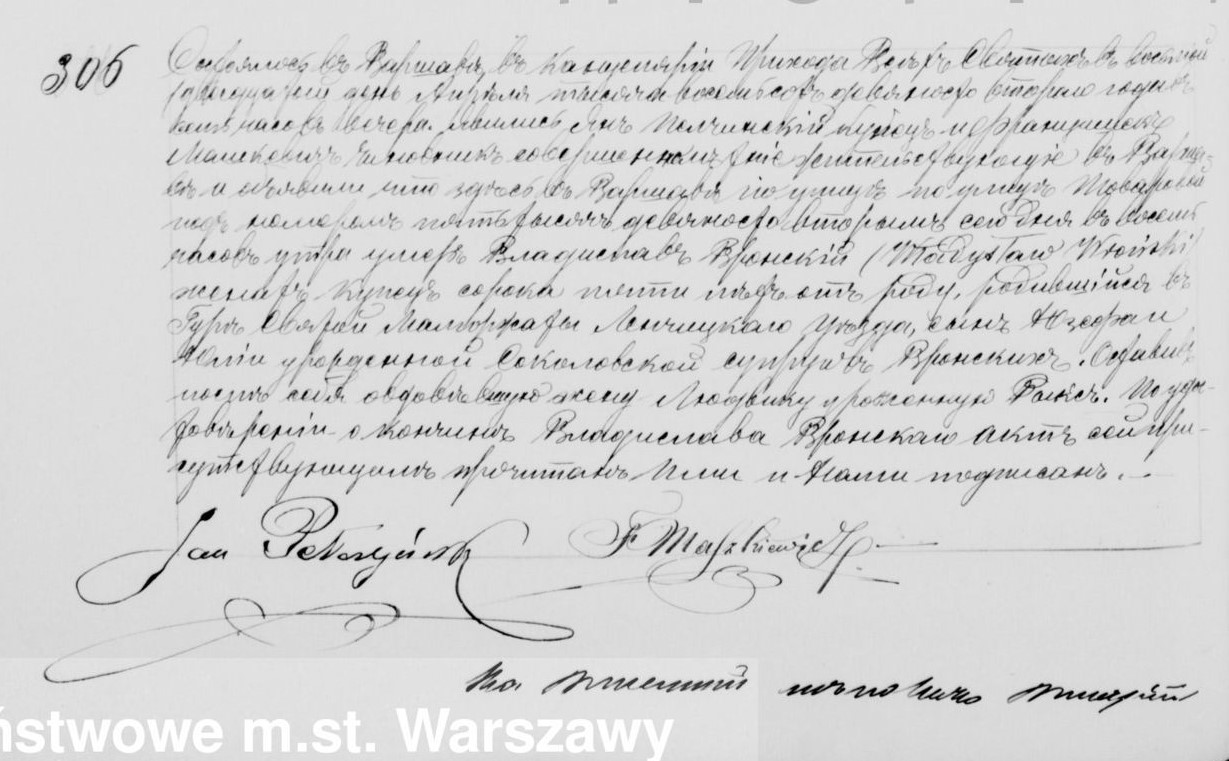 306
Состоялось въ Варшавѣ, въ канцеляріи Прихода Всѣхъ Святыхъ въ восьмой
(двадцатый) день Апрѣля тысяча восемьсотъ девяносто второго года въ
часовъ вечера. Явились Янъ Пелчинскій купецъ и Францишекъ
Машкевичъ совершеннолѣтніе жительствующіе въ Варша-
вѣ и объявили что здѣсь въ Варшавѣ по улицѣ Товаровой
подъ номеромъ пять тысячъ девяносто вторымъ сего дня въ восемь
часовъ утра умеръ Владиславъ Вронскій (Władysław Wroński)
женатъ, купецъ сорока пяти лѣтъ отъ роду, родившійся въ
Гурѣ Святой Малгоржаты Ленчицкаго Уѣзда, сынъ Юзефа и
Юліи урожденной Соколовской супруговъ Вронскихъ. Оставивъ
послѣ себя овдовѣвшую жену Людвику урожденную. По удо-
стовѣреніи о кончинѣ Владислава Вронскаго актъ сей при-
сутствующимъ прочитанъ Ими и Нами подписанъ.
Jan Pełczyński F Maszkiewicz
ństwowe m.st. Warszawy